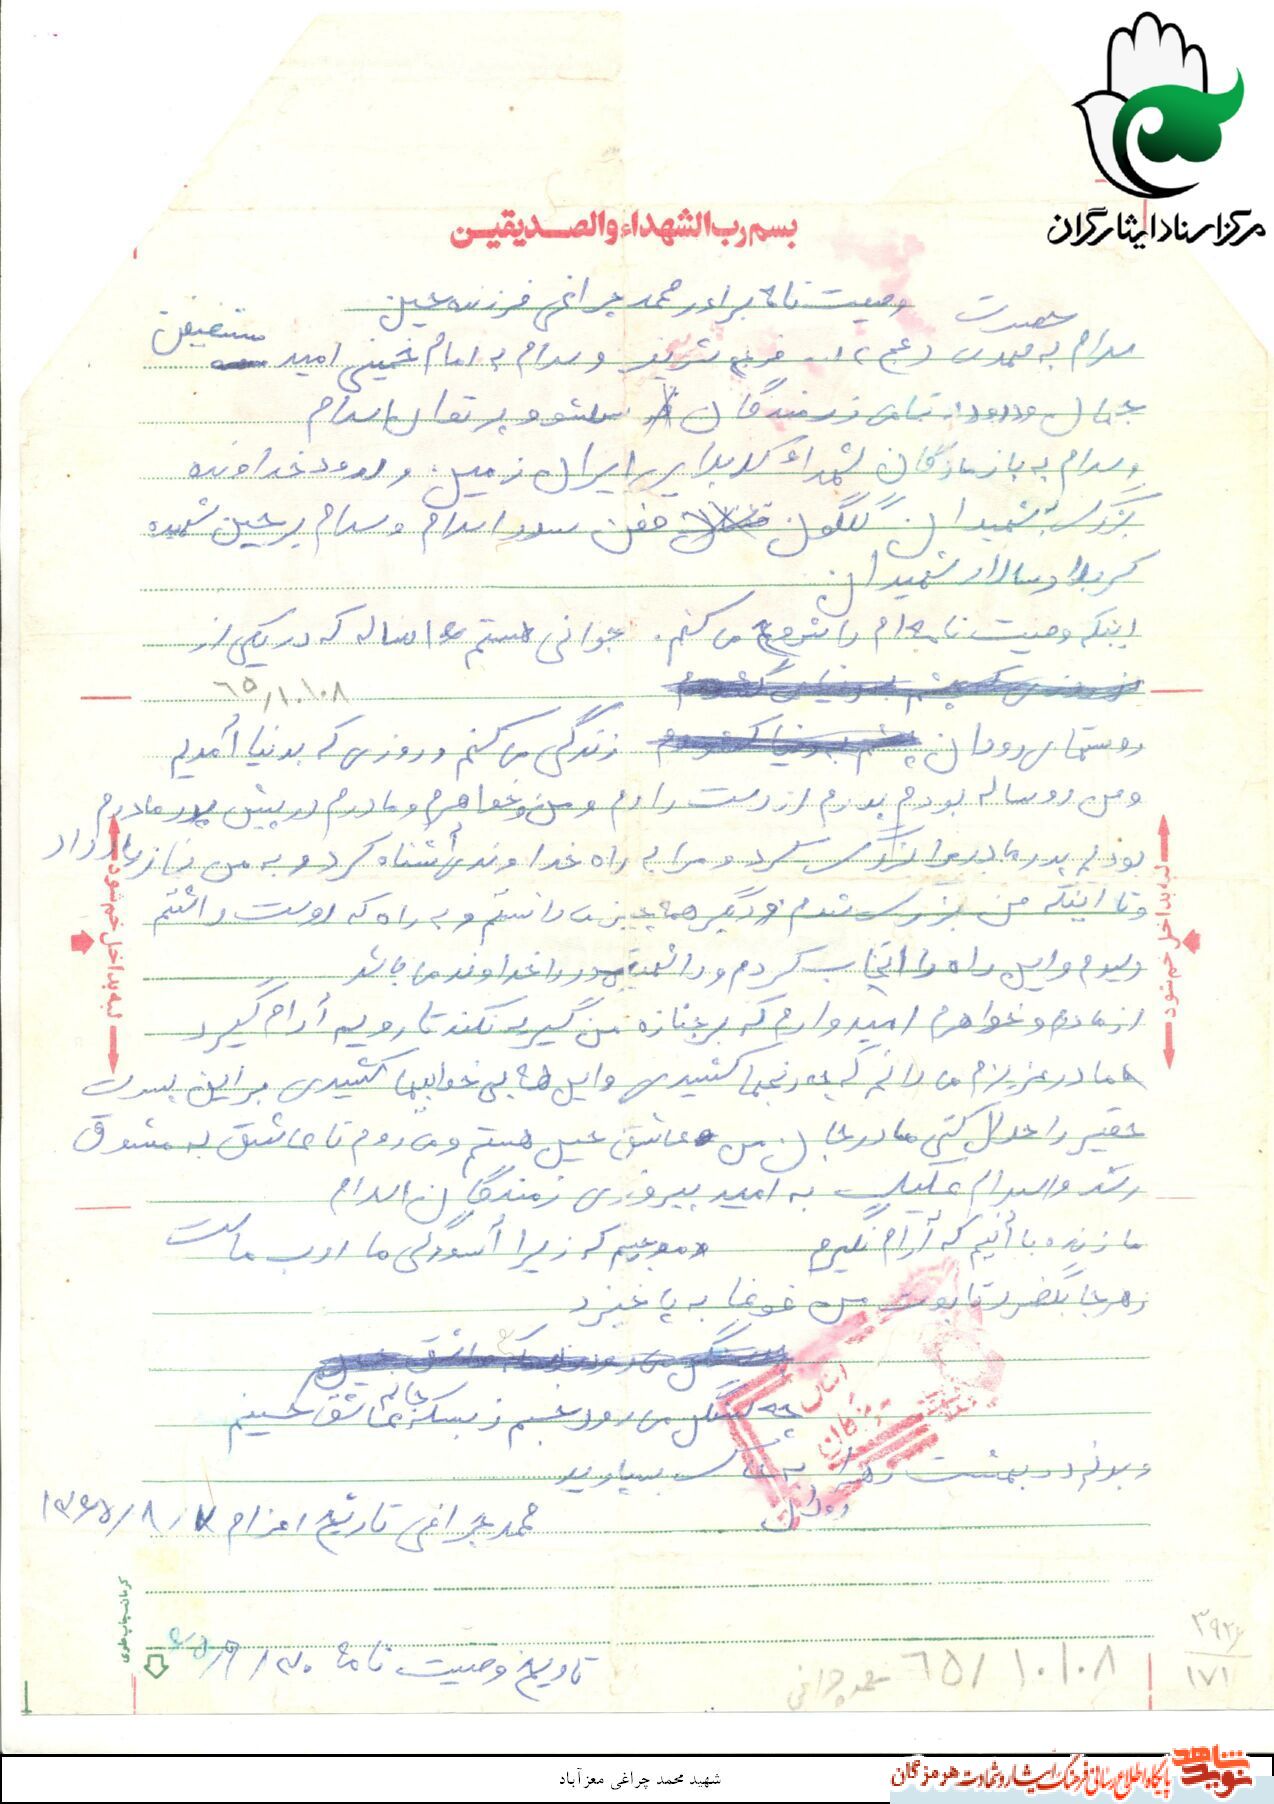 مرکز اسناد ایثارگران
بسم رب الشهداء والصدیقین
وصیت نامه برادر محمد چراغی فرزند حسین
سلام به حضرت مهدی (عج) فرج شریف و سلام به امام خمینی امید مستضعفین
جهان و درود به تمامی رزمندگان اسلام
و سلام به بازماندگان شهداء ایران زمین و درود خداونده
بزرگ به شهیدان گلگون کفن اسلام و سلام بر حسین شهیده
کربلا و سالار شهیدان
اینک وصیت نامه ام را شروع می کنم. جوانی هستم ساله که در یکی از
65/10/08
روستهای رودان زندگی می کنم و روزی که بدنیا آمدیم
و من دو ساله بودم پدرم از دست دادم و من و خواهرم و مادرم در پیش پدر مادرم
بودیم پدر مادرم مرا بزرگ کرد و مرا به راه خداوند آشناه کرد و به من نماز یاد داد
و تا اینکه من بزرگ شدم و دیگر همه چیز می دانستم و به راه که دوست داشتم
دیدم و این راه را انتخاب کردم و راه خداوند می باشد
از مادرم و خواهرم امیدوارم که بر جنازه من گریه نکند تا رویم آرام گیرد
مادر عزیزم می دانم که چه رنجها کشیدی و این همه بی خوابیها کشیدی بر این پسرت
حقیر را حلال کنی مادر جان من عاشق حسین هستم و می روم تا عاشق به معشوق
رسد والسلام علیک به امید پیروزی رزمندگان اسلام
ما زنده با آنیم که آرام نگیرم موجیم که زیرا آسودگی ما عدم ماست
زهر جا بگذرد تابوت من غوغا به پا خیزد
چه سنگین می رود جسم ز بسکه عاشق حسینم
و بدنم در بهشت زهرا رودان به خاک بسپارید
محمد چراغی تاریخ اعزام 1365/8/7
تاریخ وصیت نامه 65/9/30
65/10/08
محمد چراغی
171
لبه بداخل خم شود
لبه بداخل خم شود
شهید محمد چراغی معزآباد
نوید شاهد پایگاه اطلاع رسانی فرهنگ ایثار و شهادت هرمزگان